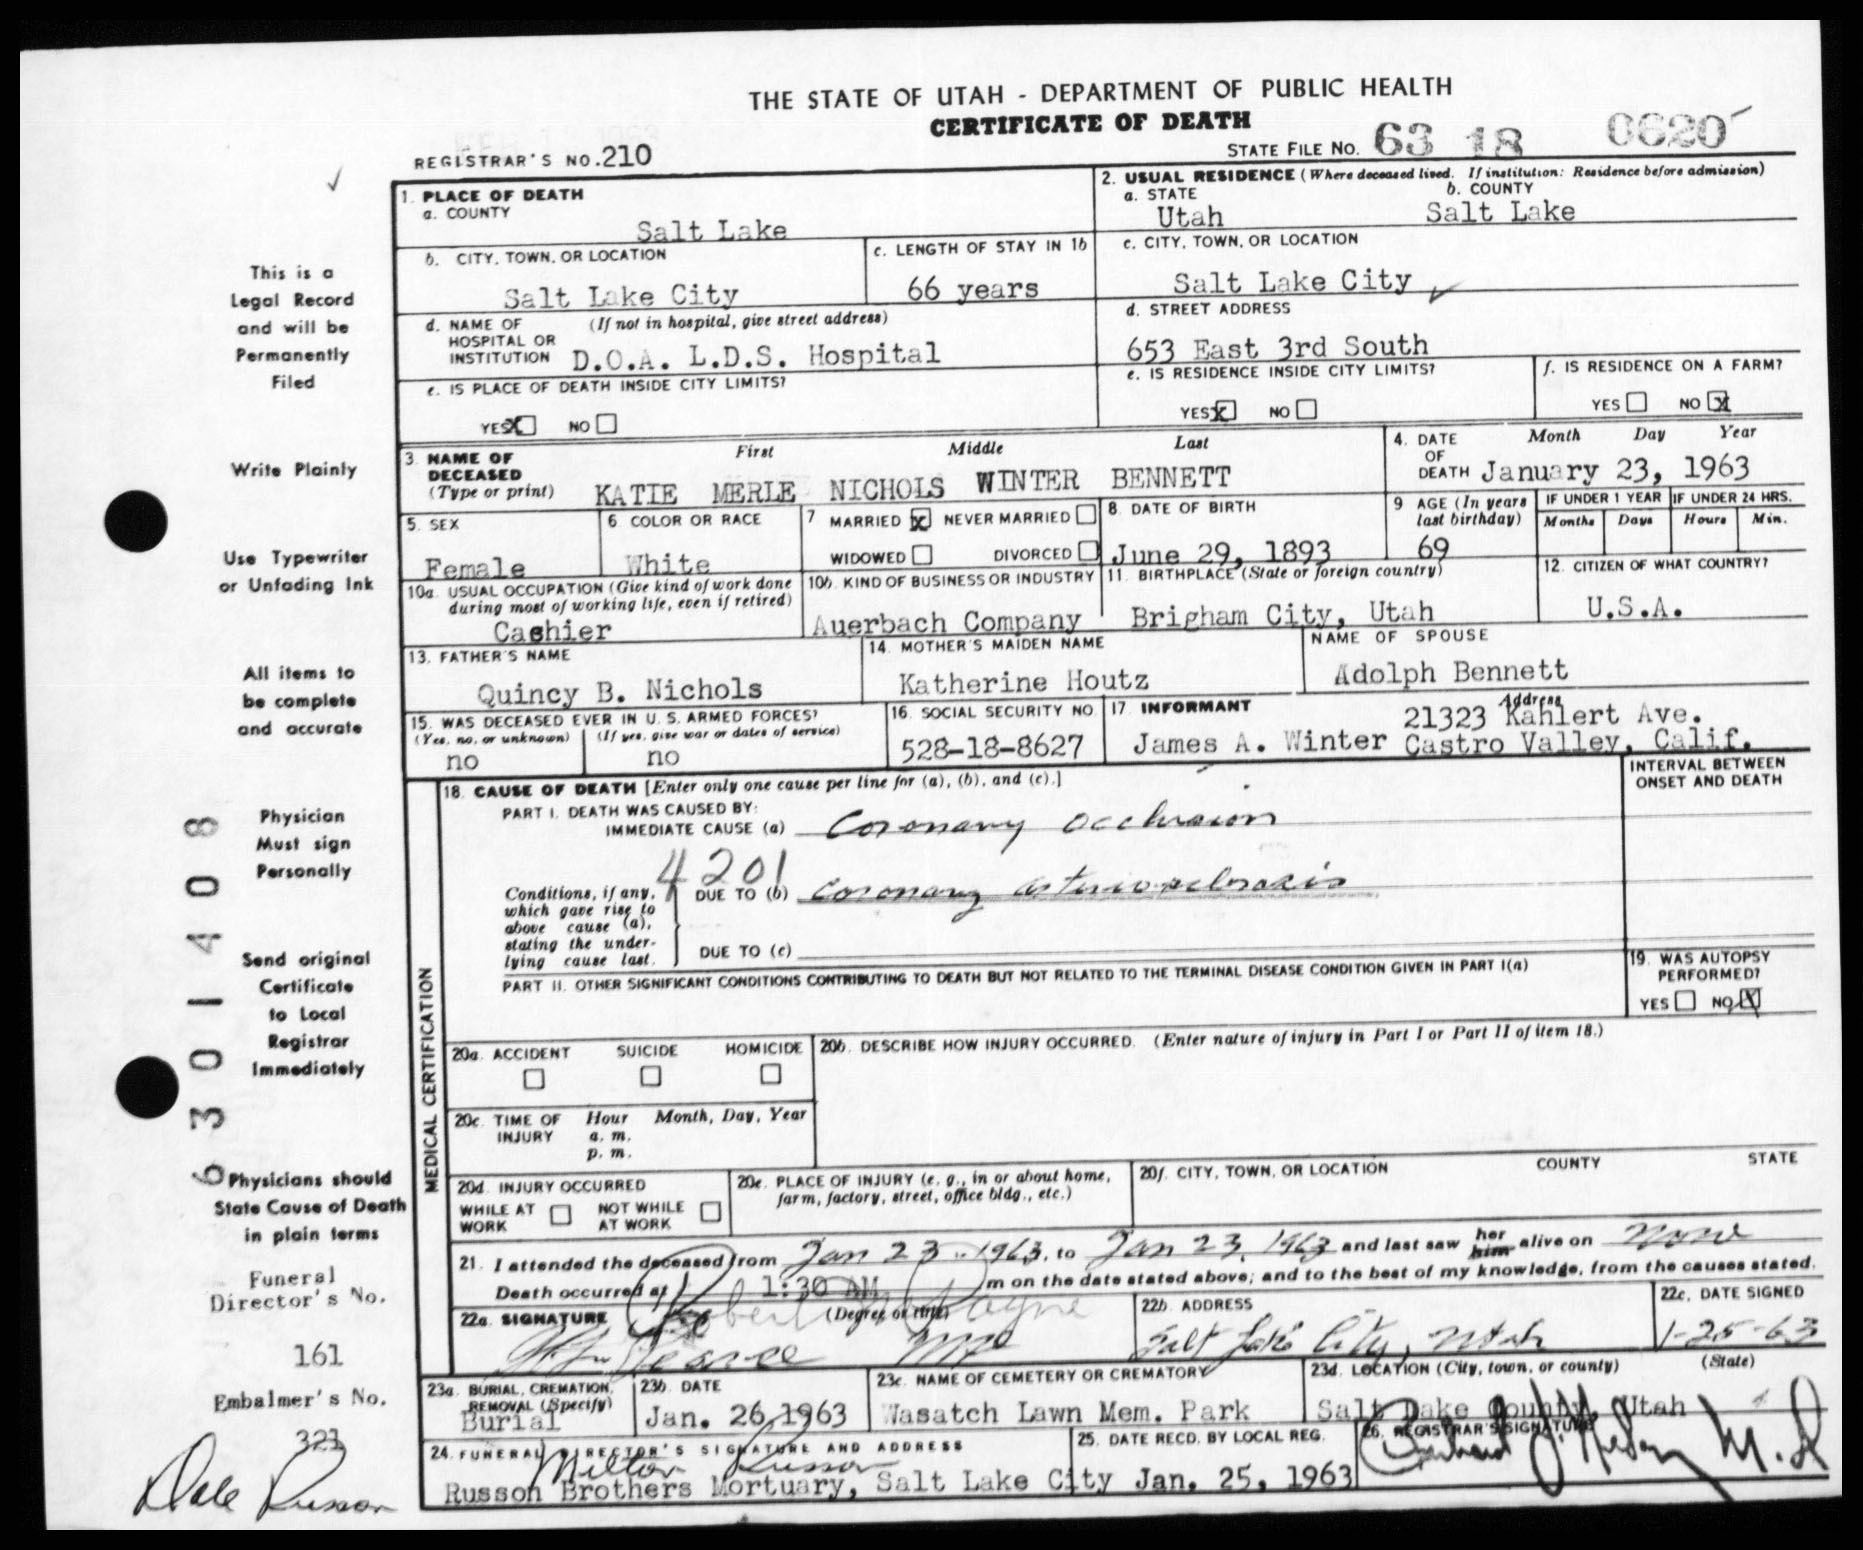 THE STATE OF UTAH - DEPARTMENT OF PUBLIC HEALTH
CERTIFICATE OF DEATH
REGISTRAR'S NO. 210
STATE FILE NO. 63 18 0620
1. PLACE OF DEATH
a. COUNTY
Salt Lake
2. USUAL RESIDENCE (Where deceased lived. If institution: Residence before admission)
a. STATE b. COUNTY
Utah Salt Lake
b. CITY, TOWN, OR LOCATION
Salt Lake City
c. LENGTH OF STAY IN 1b
66 years
c. CITY, TOWN, OR LOCATION
Salt Lake City
d. NAME OF HOSPITAL OR INSTITUTION (If not in hospital, give street address)
D.O.A. L.D.S. Hospital
d. STREET ADDRESS
653 East 3rd South
e. IS PLACE OF DEATH INSIDE CITY LIMITS?
YES X NO
e. IS RESIDENCE INSIDE CITY LIMITS?
YES X NO
f. IS RESIDENCE ON A FARM?
YES NO X
3. NAME OF DECEASED (Type or print)
First Middle Last
KATIE MERLE NICHOLS WINTER BENNETT
4. DATE OF DEATH Month Day Year
January 23, 1963
5. SEX
Female
6. COLOR OR RACE
White
7. MARRIED X NEVER MARRIED
WIDOWED DIVORCED
8. DATE OF BIRTH
June 29, 1893
9 AGE (In years last birthday)
69
IF UNDER 1 YEAR IF UNDER 24 HRS.
Months Days Hours Min.
10a. USUAL OCCUPATION (Give kind of work done during most of working life, even if retired)
Cashier
10b. KIND OF BUSINESS OR INDUSTRY
Auerbach Company
11. BIRTHPLACE (State or foreign country)
Brigham City, Utah
12. CITIZEN OF WHAT COUNTRY?
U.S.A.
13. FATHER'S NAME
Quincy B. Nichols
14. MOTHER'S MAIDEN NAME
Katherine Houtz
NAME OF SPOUSE
Adolph Bennett
15. WAS DECEASED EVER IN U. S. ARMED FORCES?
(Yes, no, or unknown) (If yes, give war or dates of service)
no no
16. SOCIAL SECURITY NO
528-18-8627
17. INFORMANT Address
James A. Winter 21323 Kahlert Ave.
Castro Valley, Calif.
MEDICAL CERTIFICATION
18. CAUSE OF DEATH [Enter only one cause per line for (a), (b), and (c).]
INTERVAL BETWEEN ONSET AND DEATH
PART I. DEATH WAS CAUSED BY:
IMMEDIATE CAUSE (a) Coronary occlusion
4201
Conditions, if any, which gave rise to above cause (a), stating the underlying cause last.
DUE TO (b) coronary arteriosclerosis
DUE TO (c)
PART II. OTHER SIGNIFICANT CONDITIONS CONTRIBUTING TO DEATH BUT NOT RELATED TO THE TERMINAL DISEASE CONDITION GIVEN IN PART I(a)
19. WAS AUTOPSY PERFORMED?
YES NO X
20a. ACCIDENT SUICIDE HOMICIDE
20b. DESCRIBE HOW INJURY OCCURRED. (Enter nature of injury in Part I or Part II of item 18.)
20c. TIME OF INJURY Hour Month, Day, Year
a. m.
p. m.
20d. INJURY OCCURRED
WHILE AT WORK NOT WHILE AT WORK
20e. PLACE OF INJURY (e. g., in or about home, farm, factory, street, office bldg., etc.)
20f. CITY, TOWN, OR LOCATION COUNTY STATE
21. I attended the deceased from Jan 23, 1963, to Jan 23, 1963 and last saw her him alive on None
Death occurred at 1:30 AM m on the date stated above; and to the best of my knowledge, from the causes stated.
22a. SIGNATURE (Degree or title)
MD
22b. ADDRESS
Salt Lake City, Utah
22c. DATE SIGNED
1-25-63
23a. BURIAL, CREMATION, REMOVAL (Specify)
Burial
23b. DATE
Jan. 26, 1963
23c. NAME OF CEMETERY OR CREMATORY
Wasatch Lawn Mem. Park
23d. LOCATION (City, town, or county) (State)
Salt Lake County, Utah
24. FUNERAL DIRECTOR'S SIGNATURE AND ADDRESS
Milton Russon
Russon Brothers Mortuary, Salt Lake City
25. DATE RECD. BY LOCAL REG.
Jan. 25, 1963
26. REGISTRAR'S SIGNATURE
M.D.
This is a
Legal Record
and will be
Permanently
Filed
Write Plainly
Use Typewriter
or Unfading Ink
All items to
be complete
and accurate
Physician
Must sign
Personally
Send original
Certificate
to Local
Registrar
Immediately
Physicians should
State Cause of Death
in plain terms
Funeral
Director's No.
161
Embalmer's No.
321
Dale Russon
6301408